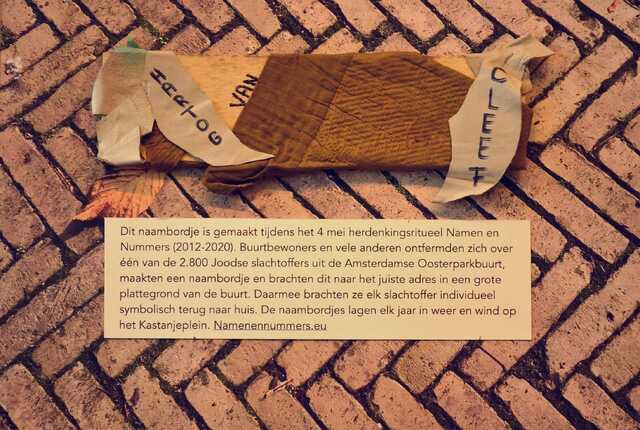 HARTOG
VAN
CLEEF
Dit naambordje is gemaakt tijdens het 4 mei herdenkingsritueel Namen en
Nummers (2012-2020). Buurtbewoners en vele anderen ontfermden zich over
één van de 2.800 Joodse slachtoffers uit de Amsterdamse Oosterparkbuurt,
maakten een naambordje en brachten dit naar het juiste adres in een grote
plattegrond van de buurt. Daarmee brachten ze elk slachtoffer individueel
symbolisch terug naar huis. De naambordjes lagen elk jaar in weer en wind op
het Kastanjeplein. Namenennummers.eu